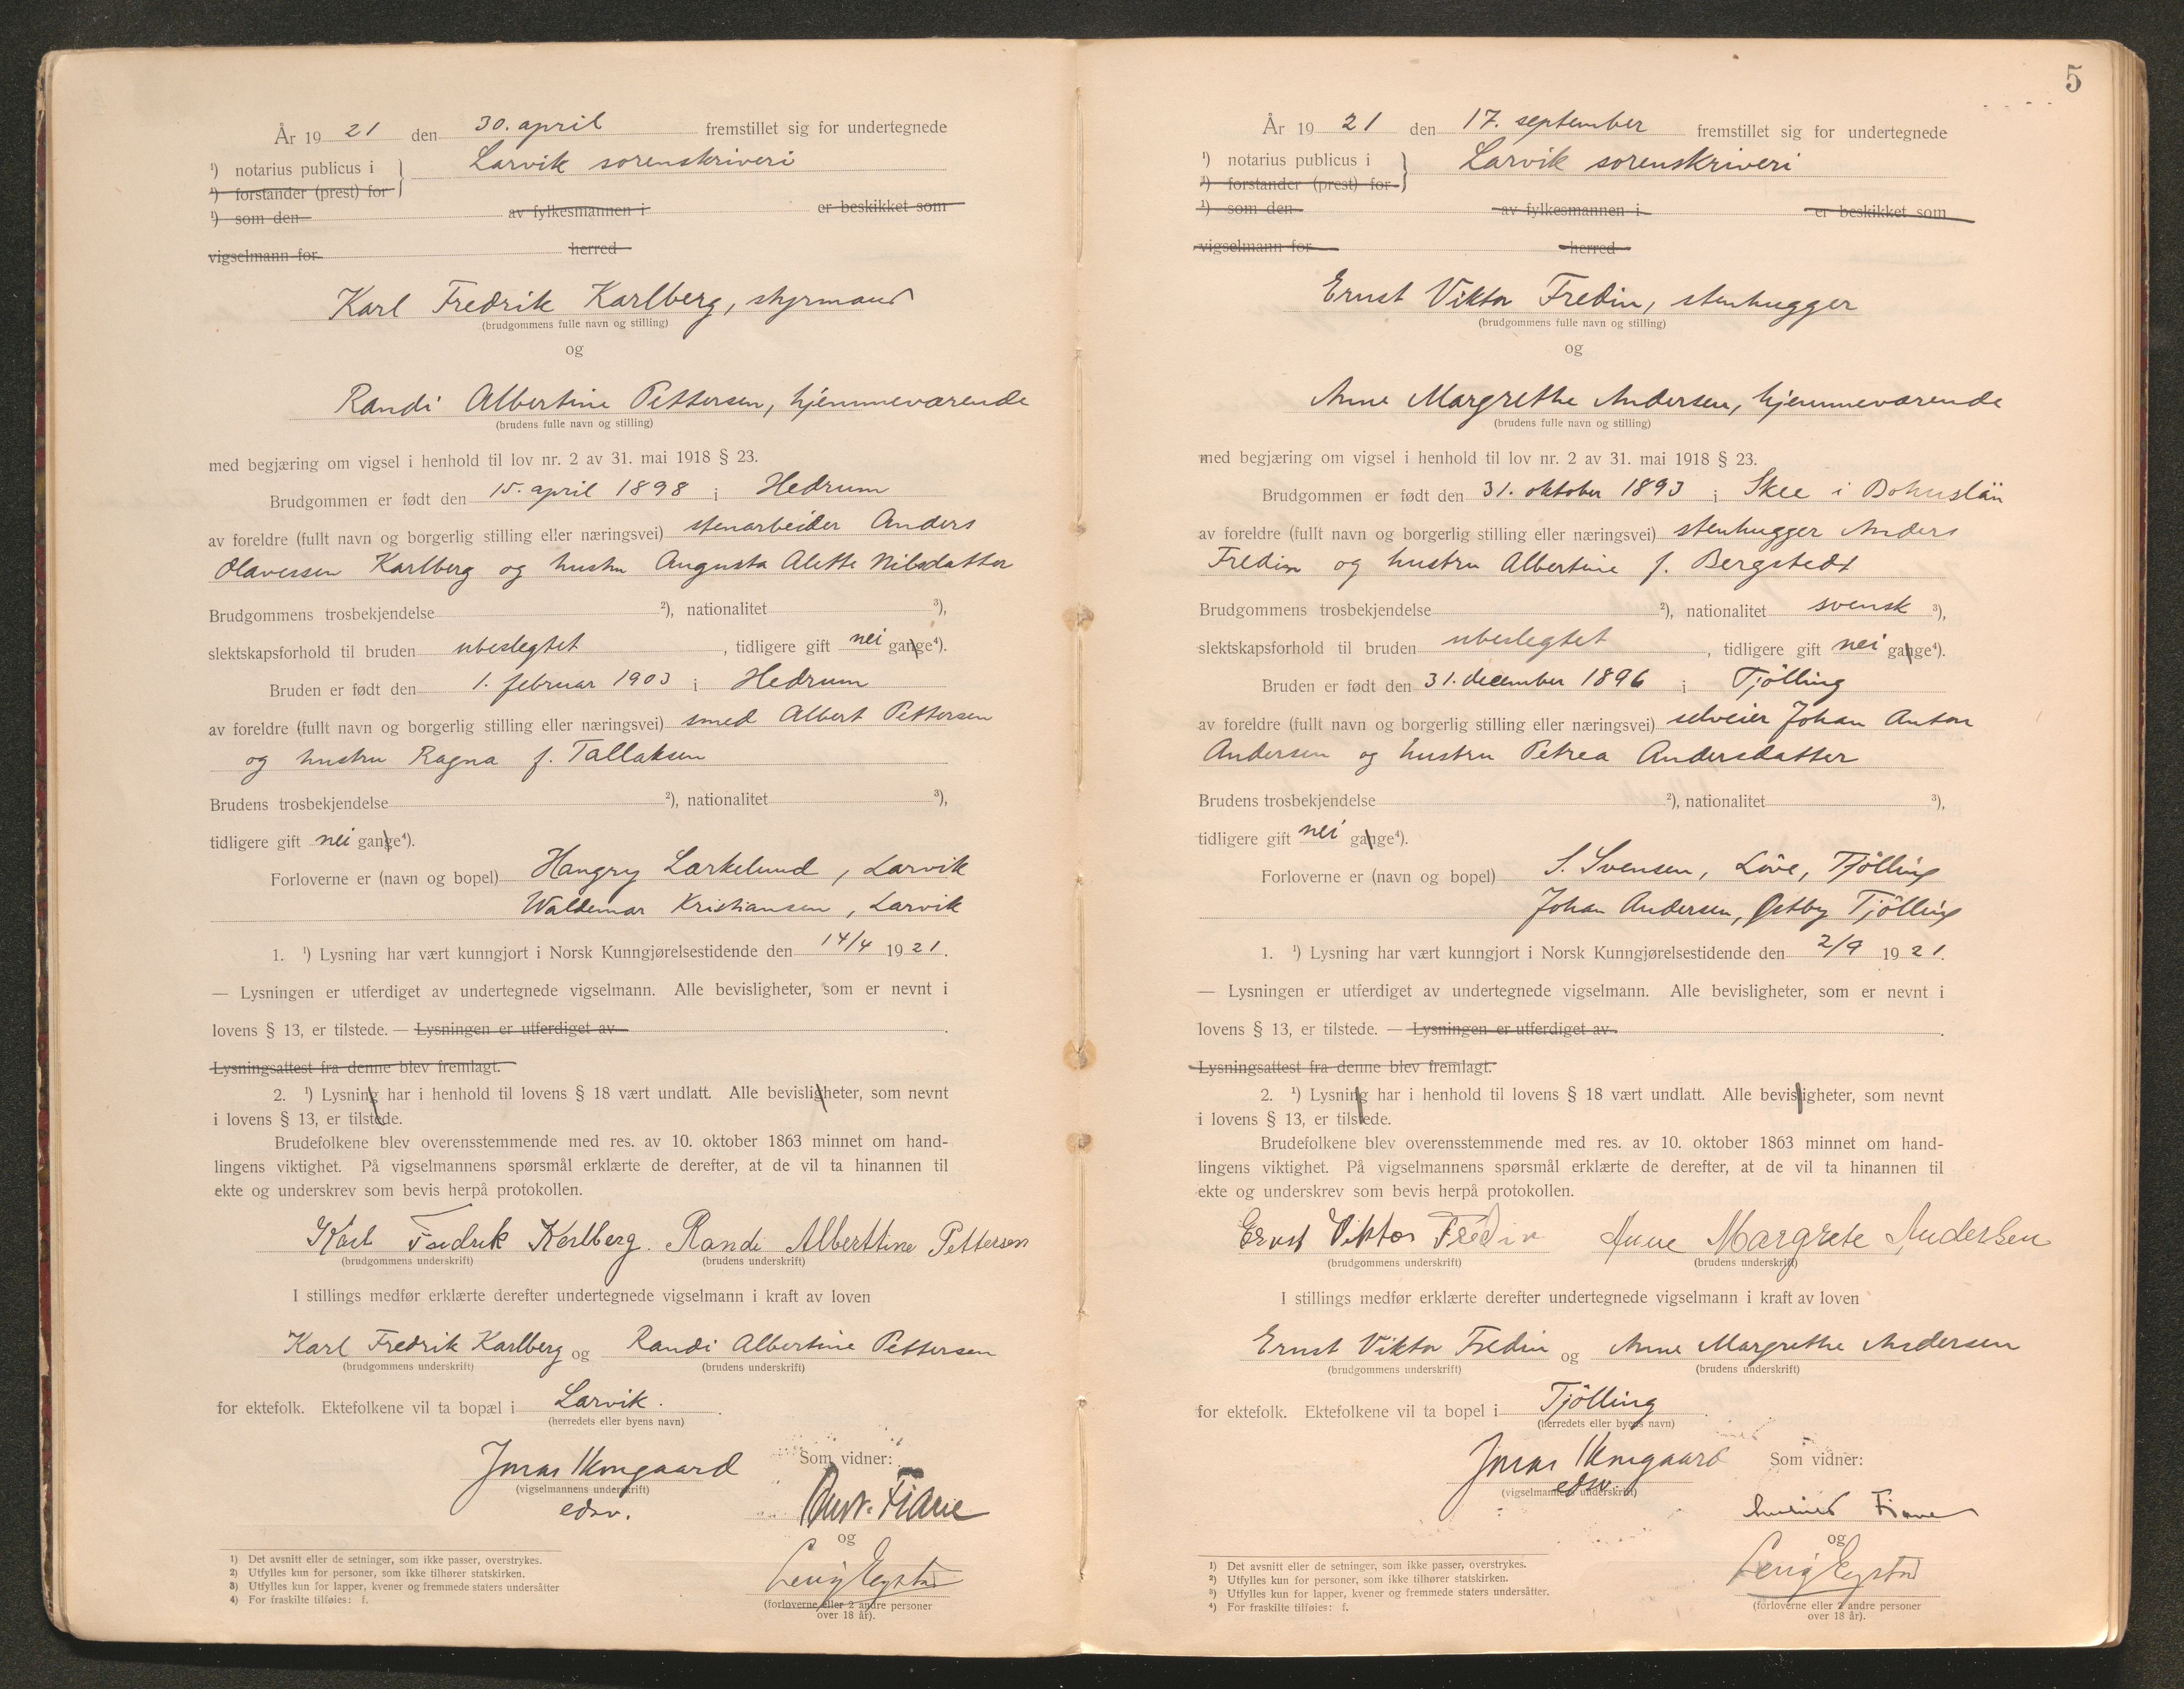 År 19 21 den 30. april fremstillet sig for undertegnede
¹) notarius publicus i } Larvik sorenskriveri
¹) forstander (prest) for
¹) som den av fylkesmannen i er beskikket som
vigselmann for herred
Karl Fredrik Karlberg, styrmand
(brudgommens fulle navn og stilling)
og
Randi Albertine Pettersen, hjemmeværende
(brudens fulle navn og stilling)
med begjæring om vigsel i henhold til lov nr. 2 av 31. mai 1918 § 23.
Brudgommen er født den 15. april 1898 i Hedrum
av foreldre (fullt navn og borgerlig stilling eller næringsvei) stenarbeider Anders
Olavessen Karlberg og hustru Augusta Alette Nilsdatter
Brudgommens trosbekjendelse ²), nationalitet ³),
slektskapsforhold til bruden ubeslegtet, tidligere gift nei gange⁴).
Bruden er født den 1. februar 1903 i Hedrum
av foreldre (fullt navn og borgerlig stilling eller næringsvei) smed Albert Pettersen
og hustru Ragna f. Tallaksen
Brudens trosbekjendelse ²), nationalitet ³),
tidligere gift nei gange⁴).
Forloverne er (navn og bopel) Hangry Larkelund, Larvik
Waldemar Kristiansen, Larvik
1. ¹) Lysning har vært kunngjort i Norsk Kunngjørelsestidende den 14/4 19 21.
— Lysningen er utferdiget av undertegnede vigselmann. Alle bevisligheter, som er nevnt i
lovens § 13, er tilstede. — Lysningen er utferdiget av .
Lysningsattest fra denne blev fremlagt.
2. ¹) Lysning har i henhold til lovens § 18 vært undlatt. Alle bevisligheter, som nevnt
i lovens § 13, er tilstede.
Brudefolkene blev overensstemmende med res. av 10. oktober 1863 minnet om hand-
lingens viktighet. På vigselmannens spørsmål erklærte de derefter, at de vil ta hinannen til
ekte og underskrev som bevis herpå protokollen.
Karl Fredrik Karlberg. Randi Alberttine Pettersen
(brudgommens underskrift) (brudens underskrift)
I stillings medfør erklærte derefter undertegnede vigselmann i kraft av loven
Karl Fredrik Karlberg og Randi Albertine Pettersen
(brudgommens underskrift) (brudens underskrift)
for ektefolk. Ektefolkene vil ta bopæl i Larvik.
(herredets eller byens navn)
Jonas Skougaard Som vidner:
(vigselmannens underskrift)
edsv.
og
(forloverne eller 2 andre personer
over 18 år).
1) Det avsnitt eller de setninger, som ikke passer, overstrykes.
2) Utfylles kun for personer, som ikke tilhører statskirken.
3) Utfylles kun for lapper, kvener og fremmede staters undersåtter
4) For fraskilte tilføies: f.
5
År 19 21 den 17. september fremstillet sig for undertegnede
¹) notarius publicus i } Larvik sorenskriveri
¹) forstander (prest) for
¹) som den av fylkesmannen i er beskikket som
vigselmann for herred
Ernst Viktor Fredin, stenhugger
(brudgommens fulle navn og stilling)
og
Anne Margrethe Andersen, hjemmeværende
(brudens fulle navn og stilling)
med begjæring om vigsel i henhold til lov nr. 2 av 31. mai 1918 § 23.
Brudgommen er født den 31. oktober 1893 i Skee i Bohuslän
av foreldre (fullt navn og borgerlig stilling eller næringsvei) stenhugger Anders
Fredin og hustru Albertine f. Bergstedt
Brudgommens trosbekjendelse ²), nationalitet svensk ³),
slektskapsforhold til bruden ubeslegtet, tidligere gift nei gange⁴).
Bruden er født den 31. december 1896 i Tjölling
av foreldre (fullt navn og borgerlig stilling eller næringsvei) selveier Johan Anton
Andersen og hustru Petrea Andersdatter
Brudens trosbekjendelse ²), nationalitet ³),
tidligere gift nei gange⁴).
Forloverne er (navn og bopel) S. Svensen, Löve, Tjölling
Johan Andersen, Østby Tjölling
1. ¹) Lysning har vært kunngjort i Norsk Kunngjørelsestidende den 2/9 19 21.
— Lysningen er utferdiget av undertegnede vigselmann. Alle bevisligheter, som er nevnt i
lovens § 13, er tilstede. — Lysningen er utferdiget av .
Lysningsattest fra denne blev fremlagt.
2. ¹) Lysning har i henhold til lovens § 18 vært undlatt. Alle bevisligheter, som nevnt
i lovens § 13, er tilstede.
Brudefolkene blev overensstemmende med res. av 10. oktober 1863 minnet om hand-
lingens viktighet. På vigselmannens spørsmål erklærte de derefter, at de vil ta hinannen til
ekte og underskrev som bevis herpå protokollen.
Ernst Viktor Fredin Anne Margrete Andersen
(brudgommens underskrift) (brudens underskrift)
I stillings medfør erklærte derefter undertegnede vigselmann i kraft av loven
Ernst Viktor Fredin og Anne Margrethe Andersen
(brudgommens underskrift) (brudens underskrift)
for ektefolk. Ektefolkene vil ta bopel i Tjölling
(herredets eller byens navn)
Jonas Skougaard Som vidner:
edsv.
(vigselmannens underskrift)
og
(forloverne eller 2 andre personer
over 18 år).
¹) Det avsnitt eller de setninger, som ikke passer, overstrykes.
²) Utfylles kun for personer, som ikke tilhører statskirken.
³) Utfylles kun for lapper, kvener og fremmede staters undersåtter.
⁴) For fraskilte tilføies: f.